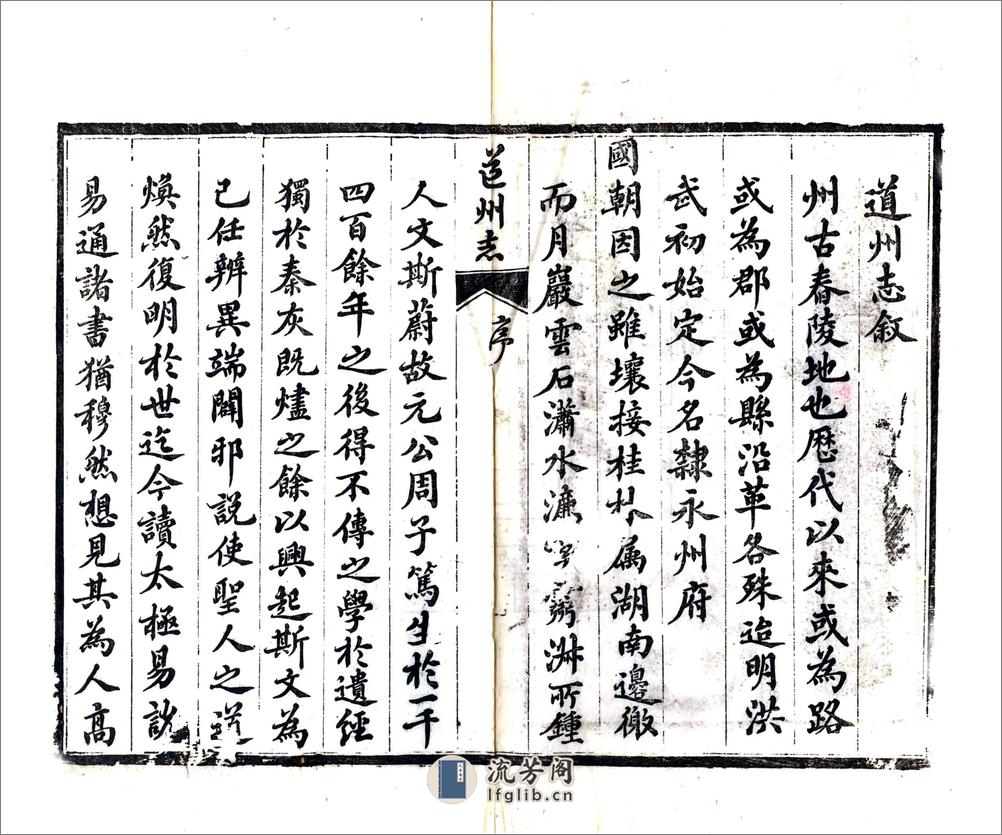 道州志敘
州古舂陵地也歷代以來或為路
或為郡或為縣沿革各殊迨明洪
武初始定今名隸永州府
國朝因之雖壤接桂林属湖南邊徼
而月巖雲石瀟水濂淑所鍾
道州志
序
人文斯蔚故元公周子篤生於一千
四百餘年之後得不傳之學於遺經
獨於秦灰既燼之餘以興起斯文為
己任辨異端闢邪說使聖人之道
煥然復明於世迄今讀太極易說
易通諸書猶穆然想見其為人高
流芳阁
lfglib.cn